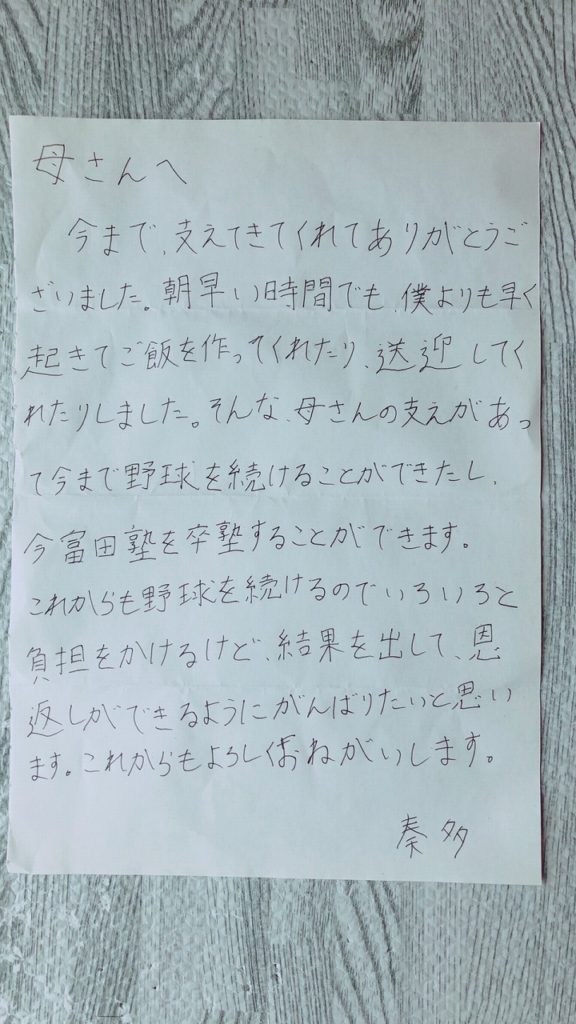 母さんへ
今まで、支えてきてくれてありがとうご
ざいました。朝早い時間でも、僕よりも早く
起きてご飯を作ってくれたり、送迎してく
れたりしました。そんな、母さんの支えがあっ
て今まで野球を続けることができたし、
今冨田塾を卒塾することができます。
これからも野球を続けるのでいろいろと
負担をかけるけど、結果を出して、恩
返しができるようにがんばりたいと思い
ます。これからもよろしくおねがいします。
奏多